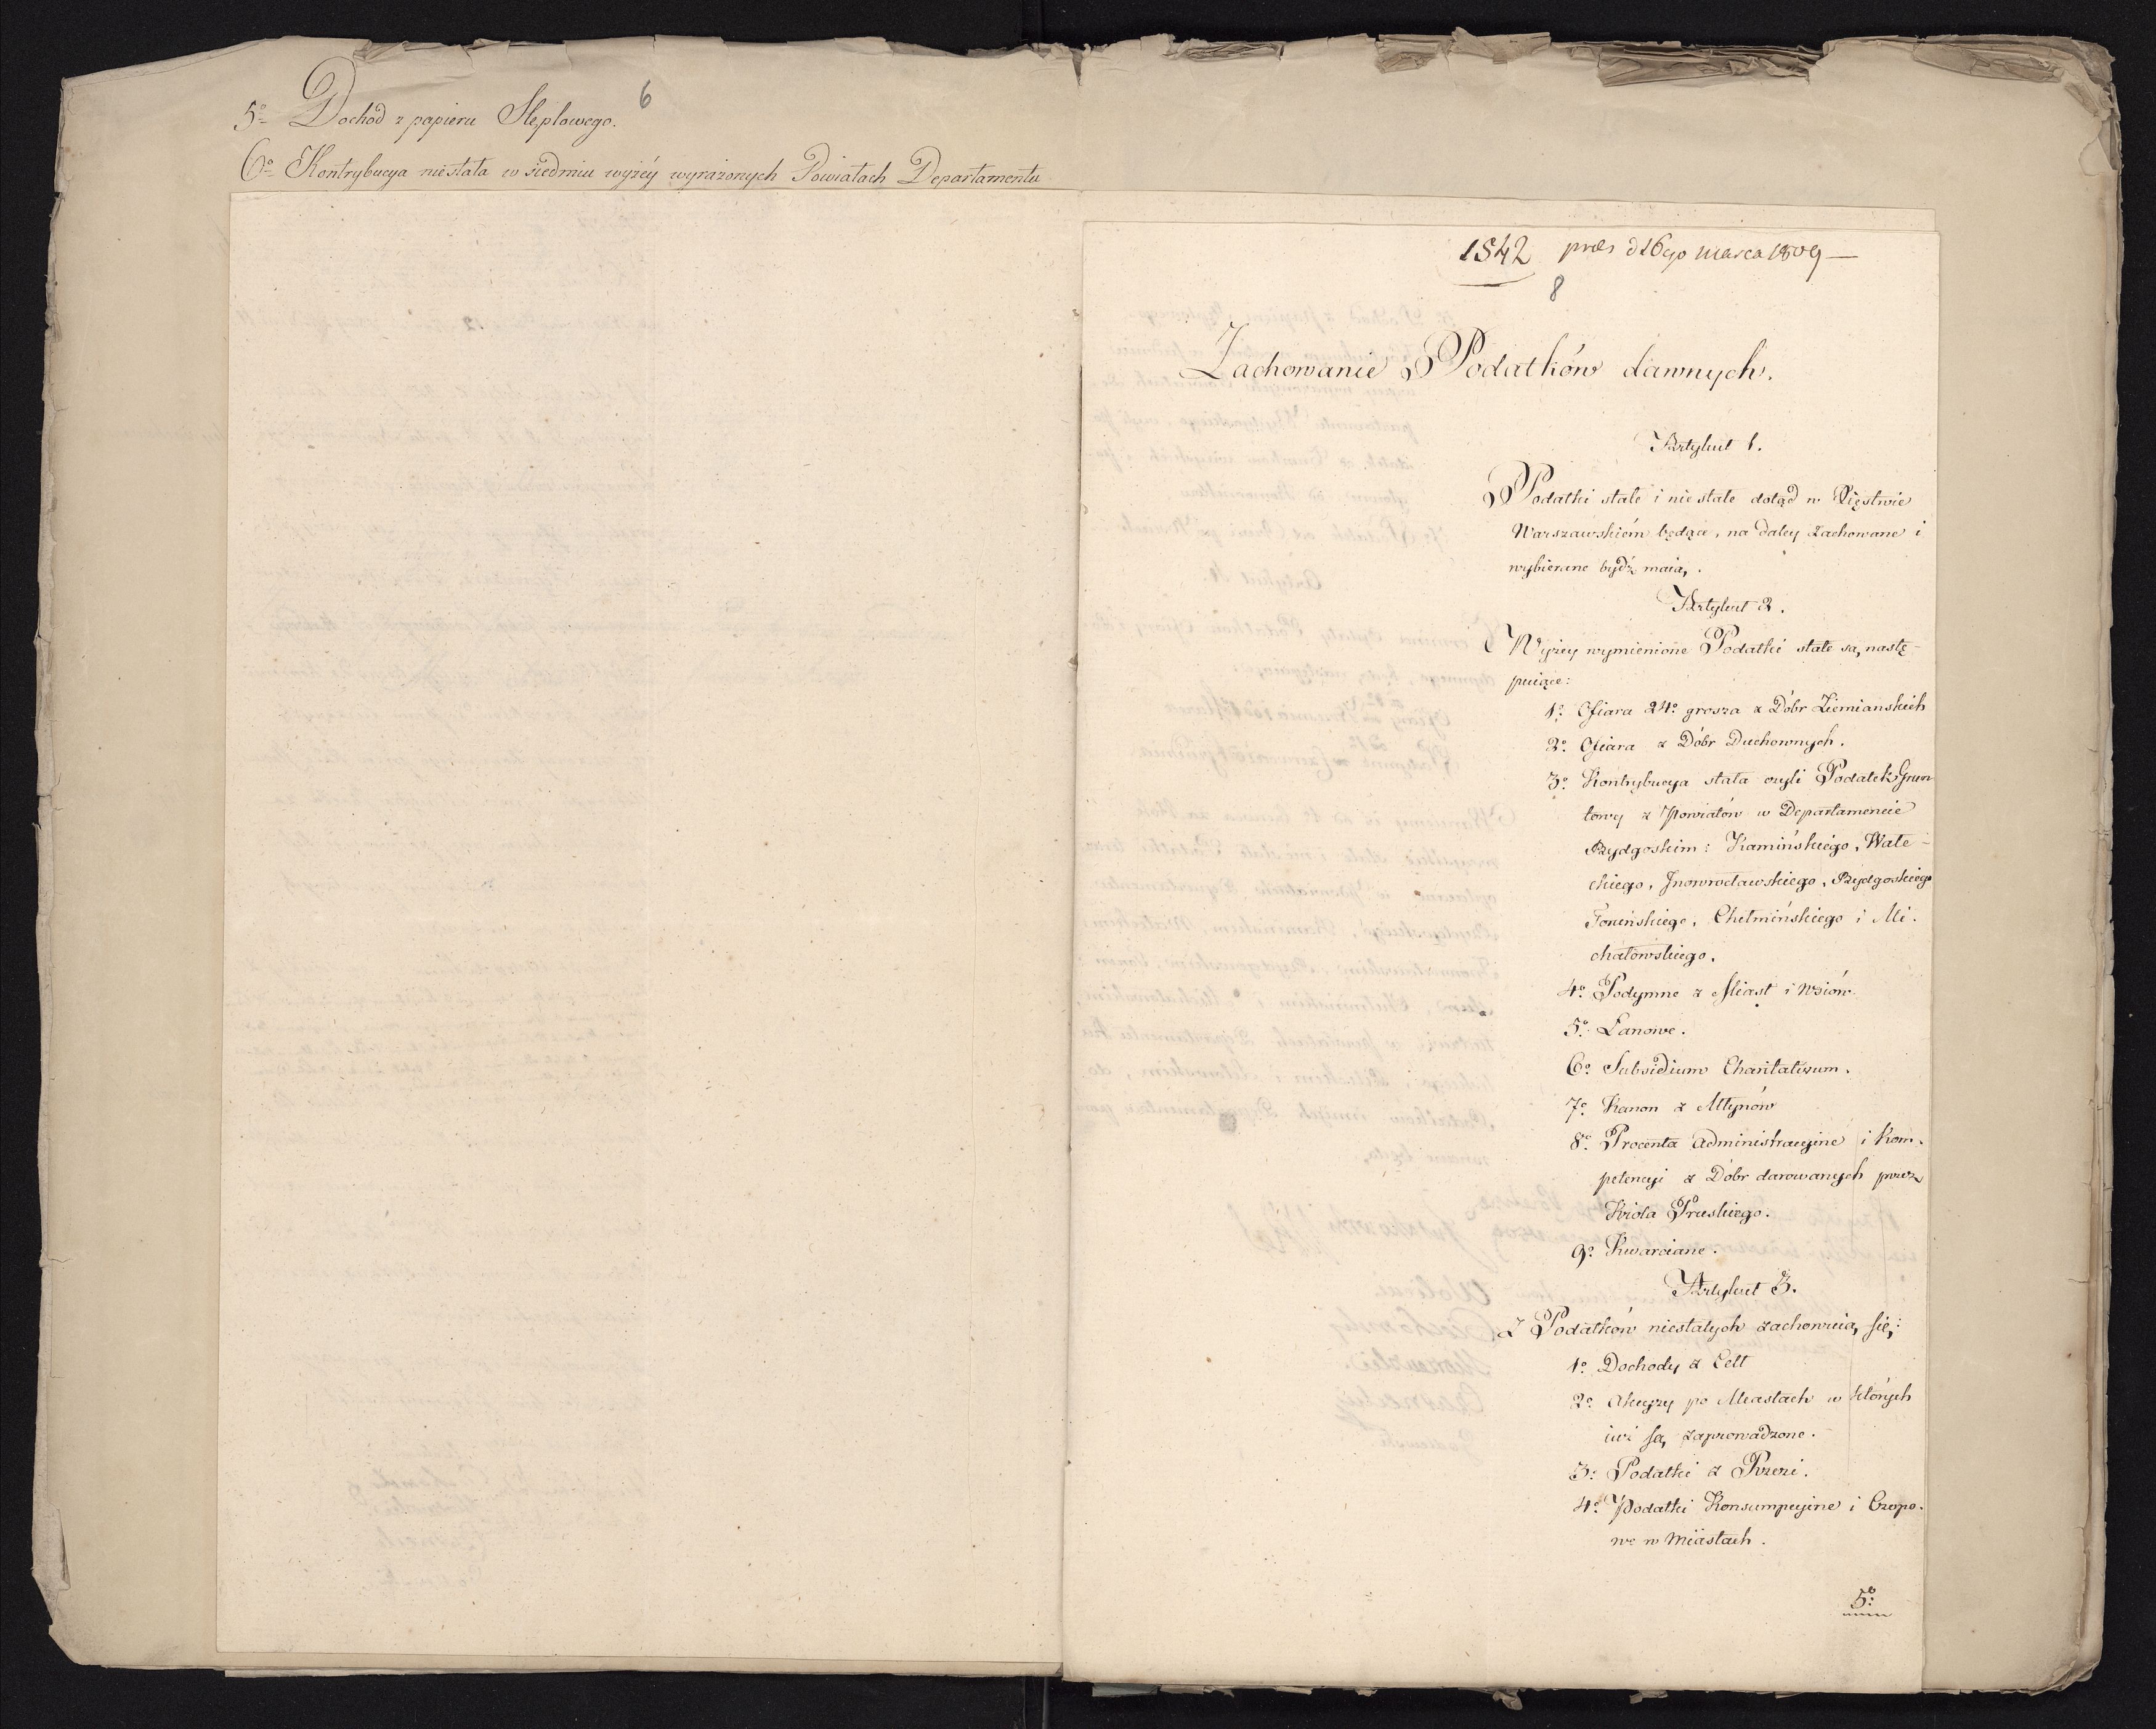 6
5º Dochód z papieru Stęplowego.
6º Kontrybucya niestała w siedmiu wyżéy wyrażonych Powiatach Departamentu
1542 præs d 16go Marca 1809 —
8
Zachowanie Podatków dawnych.
Artykuł 1.
Podatki stałe i niestałe dotąd w Xięstwie
Warszawskiém będące, na daley zachowane i
wybierane bydź maią.
Artykuł 2.
Wyżey wymienione Podatki stałe są, nastę-
puiące:
1º Ofiara 24º grosza z Dóbr Ziemianskich
2º Ofiara z Dóbr Duchownych.
3º Kontrybucya stała czyli Podatek Grun-
towy z 7 powiatów w Departamencie
Bydgoskim: Kamińskiego, Wałe-
ckiego, Jnowrocławskiego, Bydgoskiego
Toruńskiego, Chełmińskiego i Mi-
chałowskiego.
4º Podymne z Miast i Wsiów
5º Łanowe.
6º Subsidium Charitativum.
7º Kanon z Młynów
8º Procenta administracyine i kom-
petencyi z Dóbr darowanych przez
Króla Pruskiego.
9º Kwarciane.
Artykuł 3.
Z Podatków niestałych zachowuią się:
1º Dochody z Cełł
2º Akcyzy po Miastach w których
iuż są zaprowadzone.
3º Podatki z Rzezi.
4º Podatki Konsumpcyine i Czopo-
we w Miastach.
5º